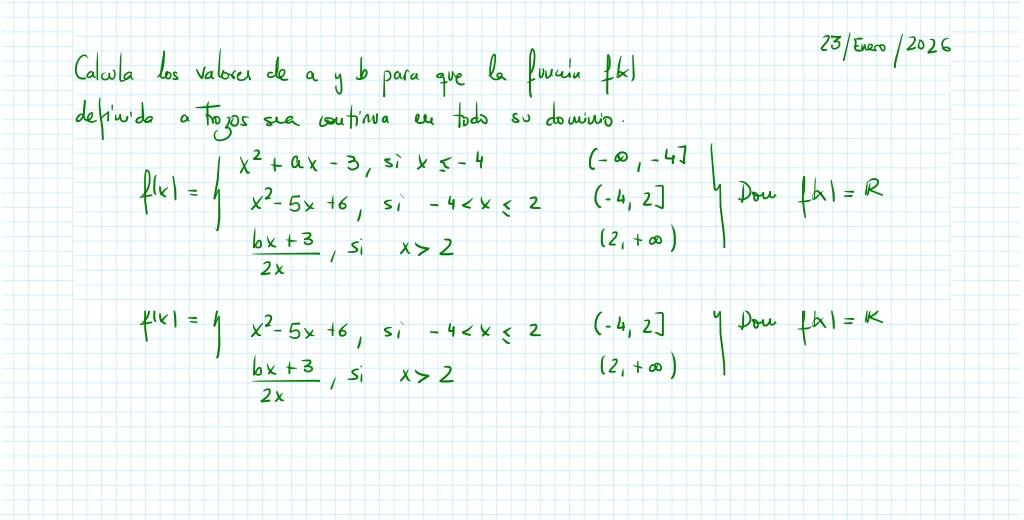 23/Enero/2026
Calcula los valores de a y b para que la función f(x)
definida a Trozos sea continua en todo su dominio.
x² + ax - 3, si x ≤ -4 (-∞, -4]
f(x) = { x² - 5x + 6, si -4 < x ≤ 2 (-4, 2] } Dom f(x) = ℝ
bx + 3 / 2x, si x > 2 (2, +∞)
f(x) = { x² - 5x + 6, si -4 < x ≤ 2 (-4, 2] } Dom f(x) = ℝ
bx + 3 / 2x, si x > 2 (2, +∞)